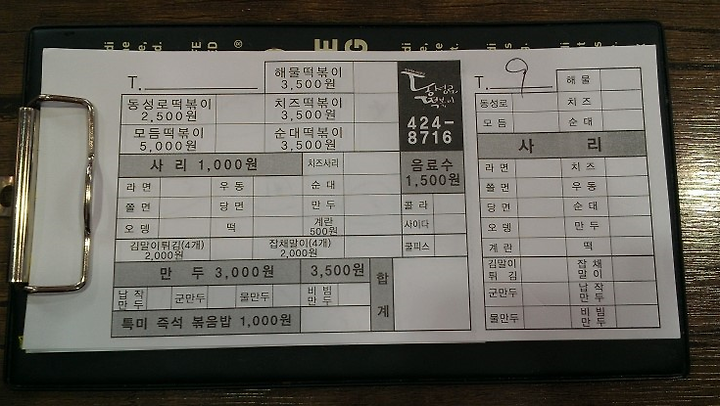 T.
해물떡볶이
3,500원
동성로떡볶이
2,500원
치즈떡볶이
3,500원
모듬떡볶이
5,000원
순대떡볶이
3,500원
동성로
떡볶이
424-
8716
사 리 1,000원
치즈사리
음료수
1,500원
라 면 우 동 순 대
쫄 면 당 면 만 두 콜 라
오 뎅 떡 계란 사이다
500원
김말이튀김(4개) 잡채말이(4개) 쿨피스
2,000원 2,000원
만 두 3,000원 3,500원 합
계
납 작
만 두
군만두 물만두
비 빔
만 두
특미 즉석 볶음밥 1,000원
T. 9
해 물
동성로 치 즈
모 듬 순 대
사 리
라 면 치 즈
쫄 면 우 동
당 면 순 대
오 뎅 만 두
계 란 떡
김말이
튀 김
잡 채
말 이
군만두
납 작
만 두
물만두
비 빔
만 두